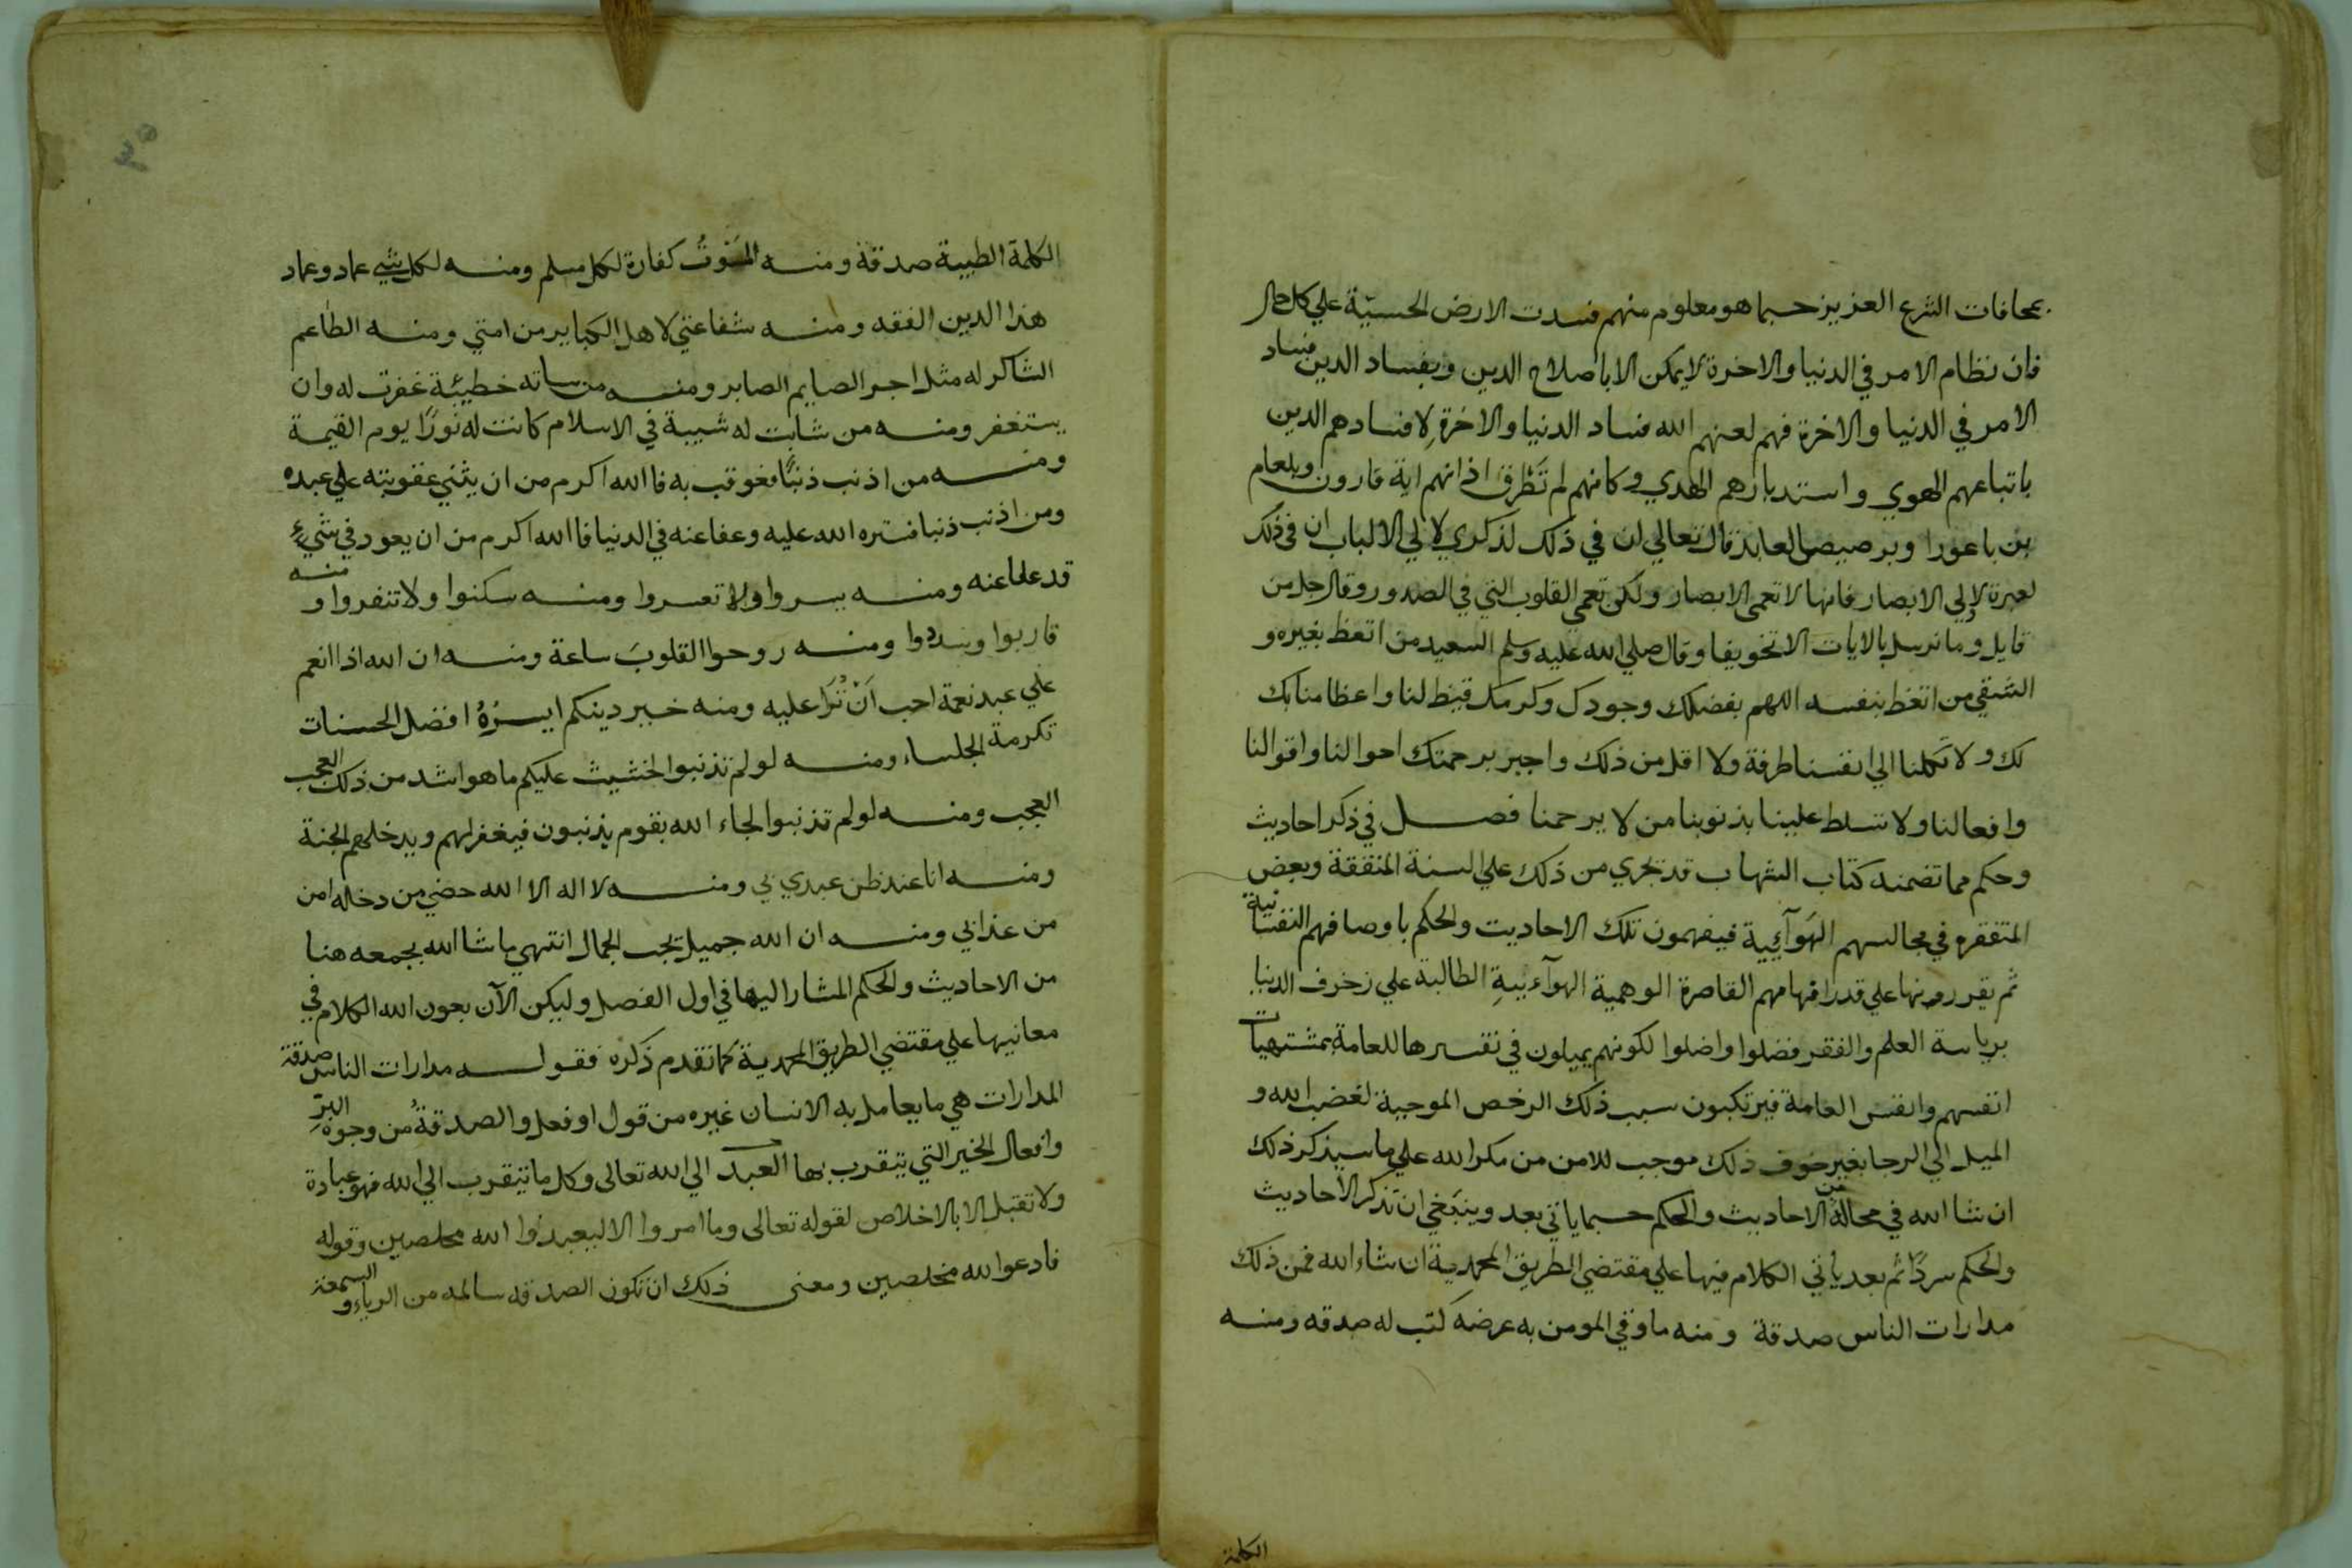 بمحافات الشرع العزيز حسبما هو معلوم منهم فسدت الارض الحسيّة علي كل حال
فان نظام الامر في الدنيا والاخرة لا يمكن الا باصلاح الدين وبفساد الدين فساد
الامر في الدنيا والاخرة فهم لعنهم الله فساد الدنيا والاخرةِ لافسادهم الدين
باتباعهم الهوي واستدبارهم الهدي وكانهم لم تَطْرق اذانهم اية قارون وبلعام
بن باعورا وبرصيصا العابد قال تعالي ان في ذلك لذكري لاولي الالباب ان في ذلك
لعبرة لاولي الابصار فانها لا تعمي الابصار ولكن تعمي القلوب التي في الصدور وقال جل من
قايل وما نرسل بالايات الا تخويفا وقال صلي الله عليه وسلم السعيد من اتعظ بغيره و
الشقي من اتعظ بنفسه اللهم بفضلك وجودك وكرمك قيظ لنا واعظا منابك
لك و لا تَكلنا الي انفسنا طرفة ولا اقل من ذلك واجبر برحمتك احوالنا واقوالنا
وافعالنا ولا تسلط علينا بذنوبنا من لا يرحمنا فصل في ذكر احاديث
وحكم مما تضمنه كتاب الشهاب قد تجري من ذلك علي السنة المتفقة وبعض
المتفقره في مجالسهم الهَوآيية فيفهمون تلك الاحاديث والحكم باوصافهم النفسانية
ثم يقررونها علي قدر افهامهم القاصرة الوهمية الهوآءييةِ الطالبة علي زخرف الدنيا
برياسة العلم والفقر فضلوا واضلوا لكونهم يميلون في تفسيرها للعامة بمشتهيات
انفسهم وانفس العامة فيرتكبون سبب ذلك الرخص الموجبة لغضب الله و
الميل الي الرجا بغير خوف ذلك موجب للامن من مكر الله علي ما سيذكر ذلك
ان شا الله في محالّه من الاحاديث والحكم حسبما ياتي بعد وينبَغي ان تذكر الأحاديث
والحكم سردًا ثم بعد يأتي الكلام فيها علي مقتضي الطريق المحمدية ان شاء الله فمن ذلك
مدارات الناس صدقة ومنه ما وقي المومن به عرضه كتب له صدقه ومنه
الكلمة
الكلمة الطيبة صدقة ومنه المَوْتُ كفارة لكل مسلم ومنه لكل شي عماد وعماد
هذا الدين الفقه ومنه شفاعتي لاهل الكباير من امتي ومنه الطاعم
الشاكر له مثل اجر الصايم الصابر ومنه من ساته خطيئة غفرت له وان
يستغفر ومنه من شابت له شيبة في الاسلام كانت له نورًا يوم القيمة
ومنه من اذنب ذنبًا فعوقب به فا الله اكرم من ان يثني عقوبته علي عبده
ومن اذنب ذنبا فستره الله عليه وعفا عنه في الدنيا فا الله اكرم من ان يعود في شيءٍ
قد عفا عنه ومنه يسروا ولا تعسروا ومنه سكنوا ولا تنفروا ومنه
قاربوا وسددوا ومنه روحوا القلوبَ ساعة ومنه ان الله اذا انعم
علي عبد نعمة احب اَنْ تُرَا عليه ومنه خير دينكم ايسرُهُ افضل الحسنات
تكرمة الجلساء ومنه لو لم تذنبوا لخشيت عليكم ما هو اشد من ذلك العجب
العجب ومنه لو لم تذنبوا لجاء الله بقوم يذنبون فيغفر لهم ويدخلهم الجنة
ومنه انا عند ظن عبدي بي ومنه لا اله الا الله حضي من دخله امن
من عذابي ومنه ان الله جميل يحب الجمال انتهي ما شا الله بجمعه هنا
من الاحاديث والحكم المشار اليها في اول الفصل وليكن الآن بعون الله الكلام في
معانيها علي مقتضي الطريق المحمدية كما تقدم ذكره فقوله مدارات الناس صدقة
المدارات هي ما يعامل به الانسان غيره من قول او فعل والصدقةُ من وجوه البرِّ
وافعال الخير التي يتقرب بها العبد الي الله تعالى وكل ما يتقرب الي الله فهو عبادة
ولا تقبل الا بالاخلاص لقوله تعالى وما امروا الا ليعبدوا الله مخلصين وقوله
فادعوا لله مخلصين ومعنى ذلك ان تكون الصدقه سالمه من الرياء والسمعة